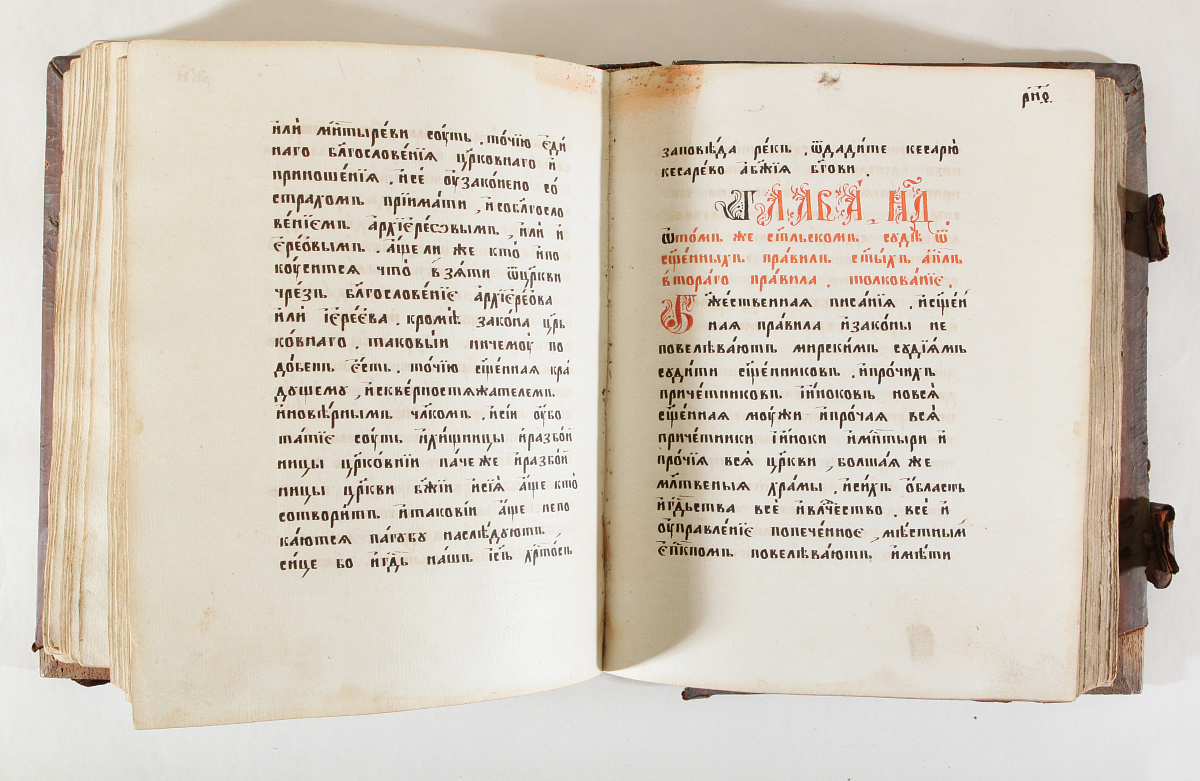 или́ мн҃тыре́ви сѹ́ть , то́чїю є҆ди́
наго бл҃гослове́нїѧ цр҃ковнаго и҆
приноше́нїѧ . и҆се́ ѹ҆зако́нено со́
стра́хомъ прїима́ти , и҆собл҃госло
ве́нїємъ архїере́ѡвымъ , и҆ли́ и҆
є҆рео́вымъ . а҆́ще ли же кто̀ и҆по
кѹ́ситсѧ что̀ взѧ́ти ѿцр҃кви
чре́зъ бл҃гослове́нїє архїєре́ова
и҆ли́ їєре́єва . кромѣ̀ зако́на цр҃ь
ко́внаго . тако́вый ничемѹ̀ по
до́бенъ є҆́сть . то́чїю сщ҃е́нная кра́
дущему , и҆скве́рностѧжателемъ
и҆новѣ́рнымъ чл҃комъ . и҆сїи ѹ҆́бо
та́тїє сѹ́ть и҆хи́щницы и҆разбо́й
ницы цр҃ко́внїи па́че же и҆разбо́й
ницы цр҃кви бж҃їи и҆сїѧ̀ а҆́ще кто̀
сотвори́тъ и҆тако́вїи а҆́ще непо
ка́ютсѧ па́губу наслѣ́дуютъ
си́це бо и҆гд҃ь на́шъ їс҃ъ хр҃то́съ
рн҃ѳ
заповѣ́да ре́къ . ѿдади́те кесарю̀
кесаре́во а҆бж҃їѧ бг҃ови .
Глава̀ , н҃д
ѿто́мъ же ст҃льскомъ судѣ̀ ѿ
сщ҃е́нныхъ пра́вилъ ст҃ы́хъ ап҃лъ
вто́ра́го пра́вила . толкова́нїє .
Бж҃е́ственная писа́нїѧ , и҆сщ҃е́н
ная пра́вила и҆зако́ны не
повелѣва́ютъ мирски́мъ судїѧ́мъ
суди́ти сщ҃е́нниковъ , и҆про́чихъ
приче́тниковъ і҆и́ноковъ новсѧ̀
сщ҃е́нная мѹ́жи и҆про́чая всѧ̀
приче́тники і҆и́ноки и҆мн҃тыри и҆
про́чїѧ всѧ̀ цр҃кви , бо́лшая же
мл҃твеныѧ хра́мы , и҆си́хъ ѻ҆́бласть
и҆гд҃ьства всѐ и҆вл҃че́ство , всѐ и҆
ѹ҆правле́нїє попече́нное , мѣ́стнымъ
є҆пк҃помъ повелѣва́ютъ и҆мѣ́ти